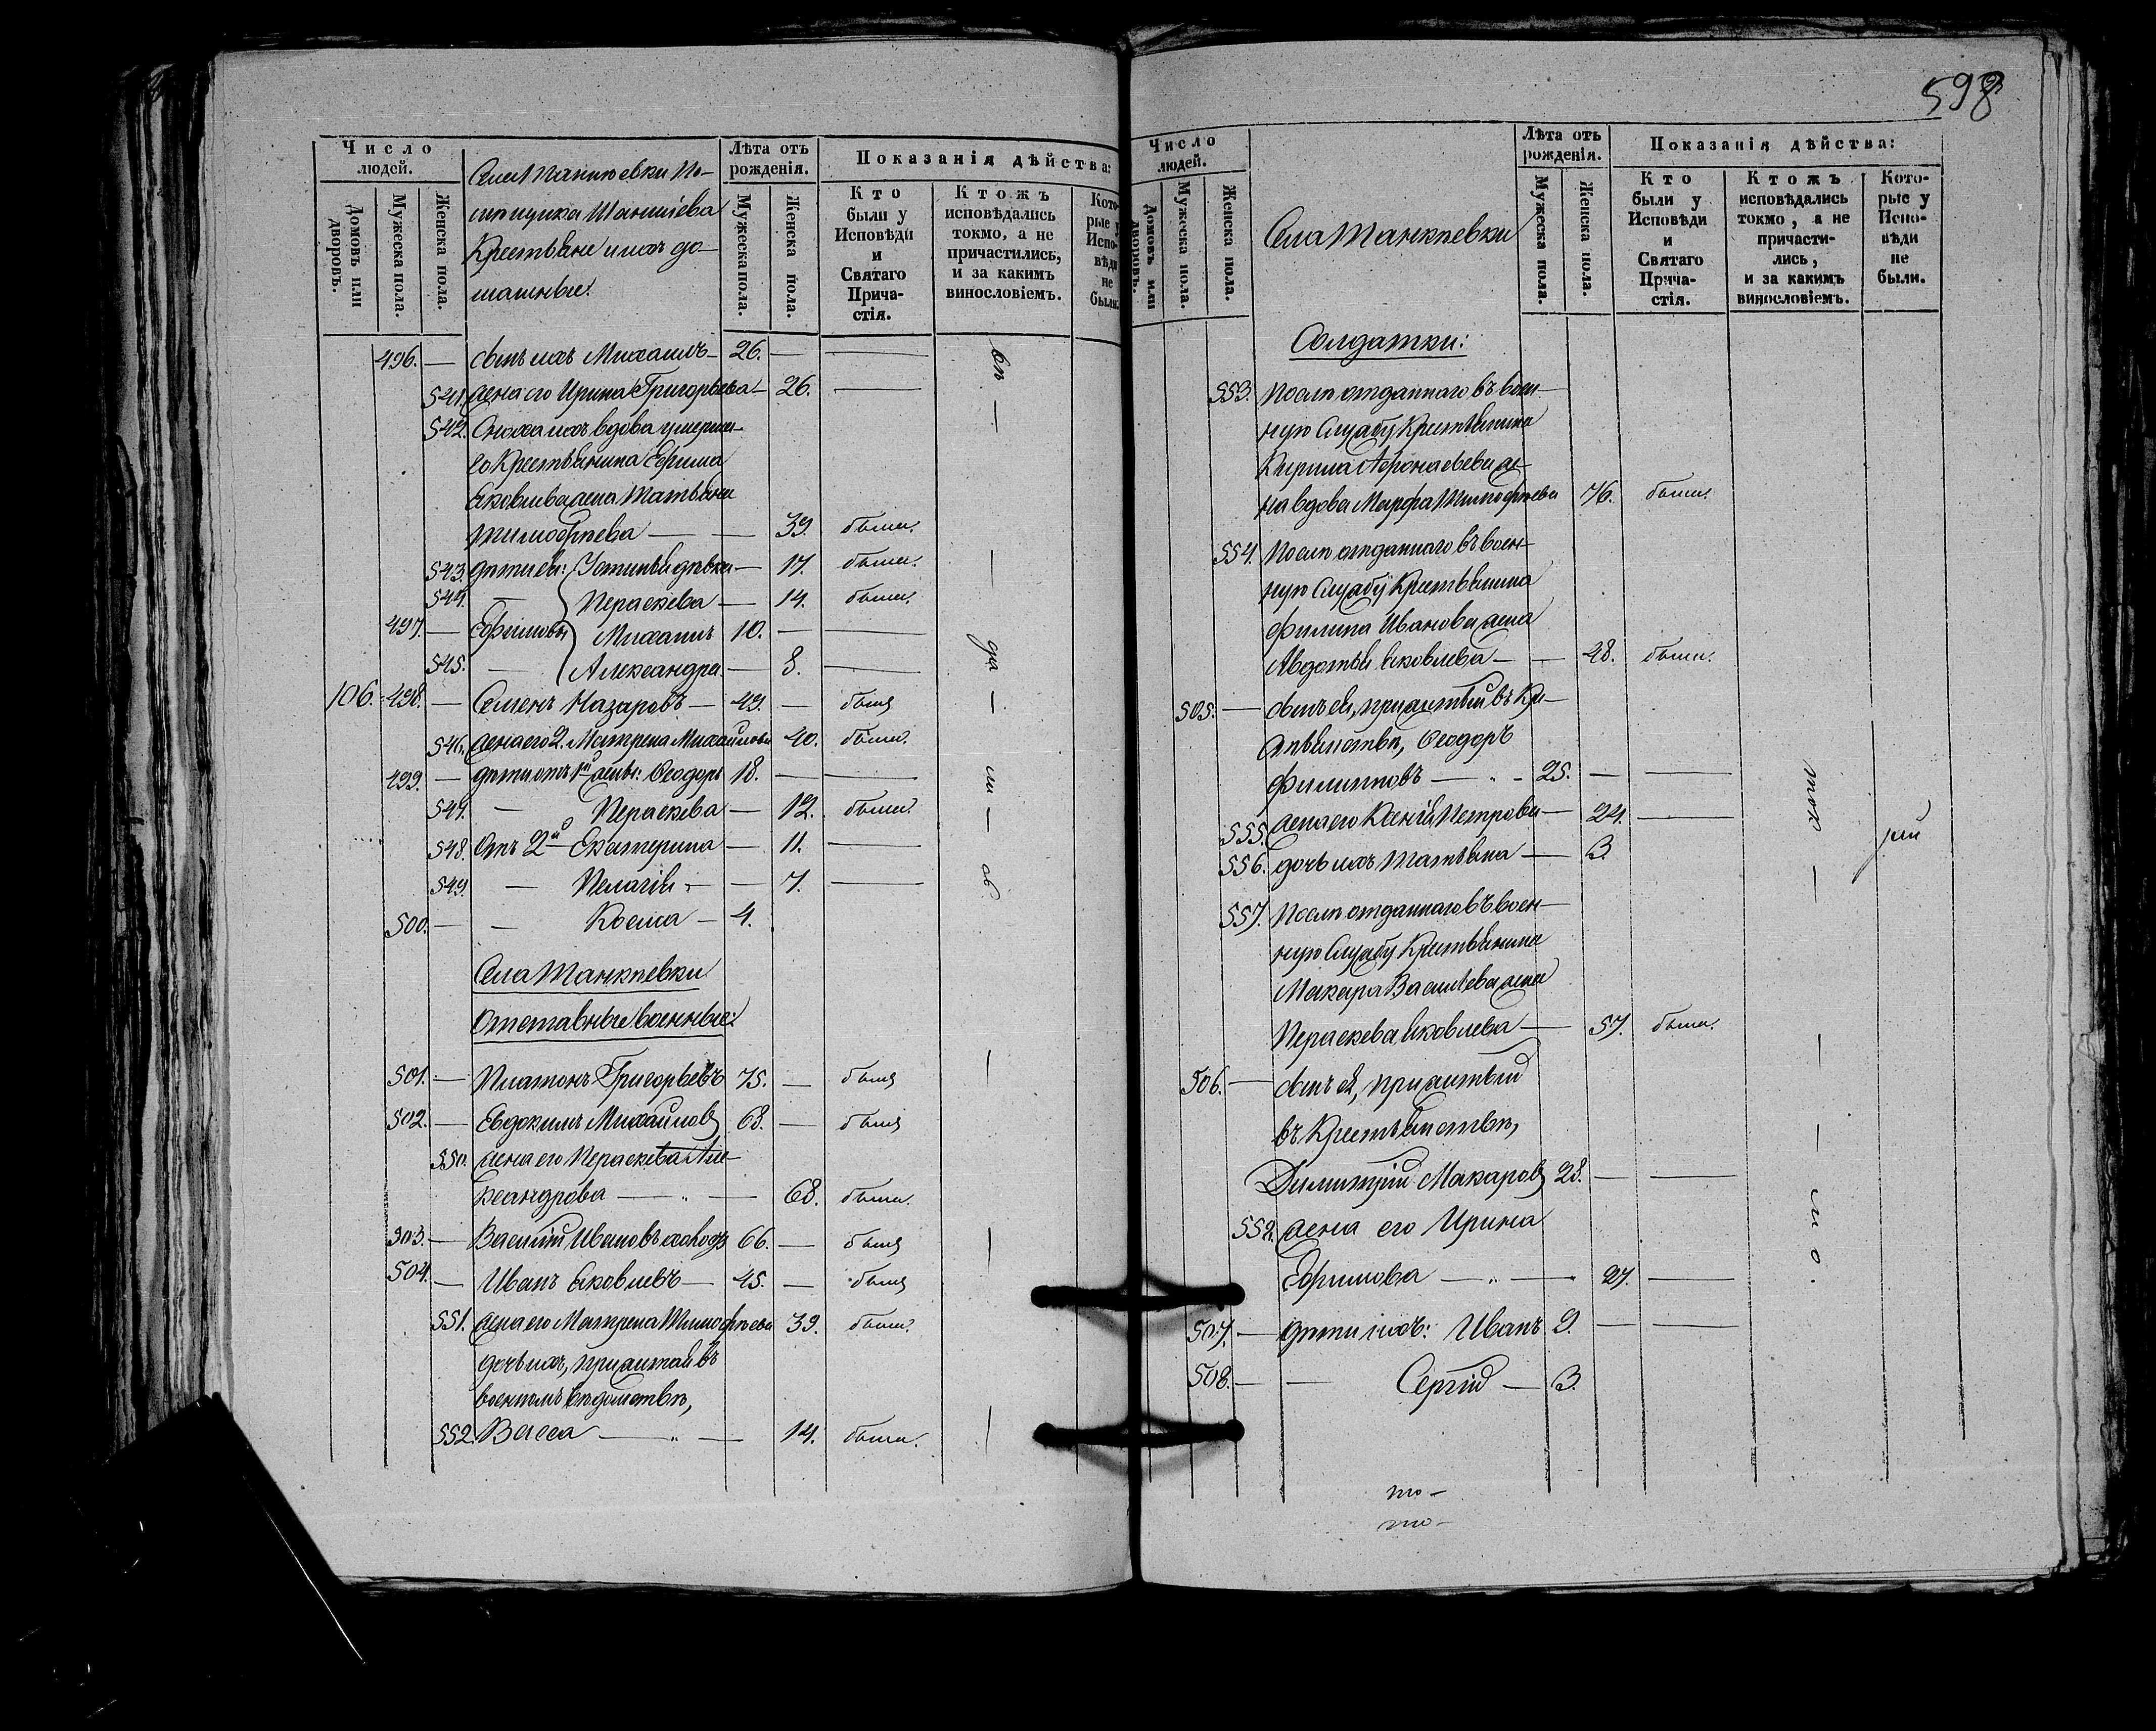 598
Число людей.
Домовъ или дворовъ.
Мужеска пола.
Женска пола.
Села Танкѣевки По-
мѣщика
Крестьяне и ихъ до-
машные.
Лѣта отъ рожденія.
Мужеска пола.
Женска пола.
Показанія дѣйства:
Кто были у Исповѣди и Святаго Прича-стія.
Ктожъ исповѣдались токмо, а не причастились, и за какимъ винословіемъ.
Кото-рые у Испо-вѣди не были.
496. — сынъ ихъ Михаилъ — 26. — —
541. жена его Ирина Григорьева — 26. —
542. Сноха ихъ вдова умерша-
го Крестьянина Ефима
Яковлева жена Татьяна
Тимофѣева — — 39. была.
543. дѣти ея: Устинья дѣвка — 17. была.
544. — Параскева — 14. была.
497. — Ефимовы Михаилъ 10. — —
545. — Александра — 8. —
106. 498. — Семенъ Назаровъ — 49. — былъ
546. жена его 2. Матрена Михайлова 40. была.
499. — дѣти отъ 1й жены: Ѳеодоръ 18. — —
547. — Параскева — 12. была.
548. Отъ 2й Екатерина — 11. —
549. — Пелагія — — 7. —
500. — — Косма — 4.
Села Танкѣевки
Отставные военные:
501. — Платонъ Григорьевъ 75. — былъ
502. — Евдокимъ Михайловъ 68. — былъ
550. жена его Параскева Але-
ксандрова — „ — 68. была.
503. — Василій Ивановъ 66. — былъ
504. — Иванъ Яковлевъ — 45. — былъ
551. жена его Матрена Тимофѣева 39. была.
дочь ихъ, прижитая въ
военномъ вѣдомствѣ,
552. Васса — „ — 14. была.
Число людей.
Домовъ или дворовъ.
Мужеска пола.
Женска пола.
Села Танкѣевки
Лѣта отъ рожденія.
Мужеска пола.
Женска пола.
Показанія дѣйства:
Кто были у Исповѣди и Святаго Прича-стія.
Ктожъ исповѣдались токмо, а не причасти-лись, и за какимъ винословіемъ.
Кото-рые у Испо-вѣди не были.
Солдатки:
553. Послѣ отданнаго въ воен-
ную Службу Крестьянина
Кирила Аѳонасьева же-
на вдова Марфа Тимофѣева 76. была.
554. Послѣ отданнаго въ воен-
ную Службу Крестьянина
Филипа Иванова жена
Авдотья Яковлева — — 48. была.
505. — сынъ ея, прижитый въ Кре-
стьянствѣ, Ѳеодоръ
Филиповъ — „ - 25. — —
555. жена его Ксенія Петрова — 24. —
556. дочь ихъ Татьяна — 3.
557. Послѣ отданнаго въ воен-
ную Службу Крестьянина
Макара Васильева жена
Параскева Яковлева — 57. была.
506. — сынъ ея, прижитый
въ Крестьянствѣ,
Димитрій Макаровъ 28. — —
558. жена его Ирина
Ефимова — „ — 27. —
507. — дѣти ихъ: Иванъ 9. — —
508. — — Сергій — 3.